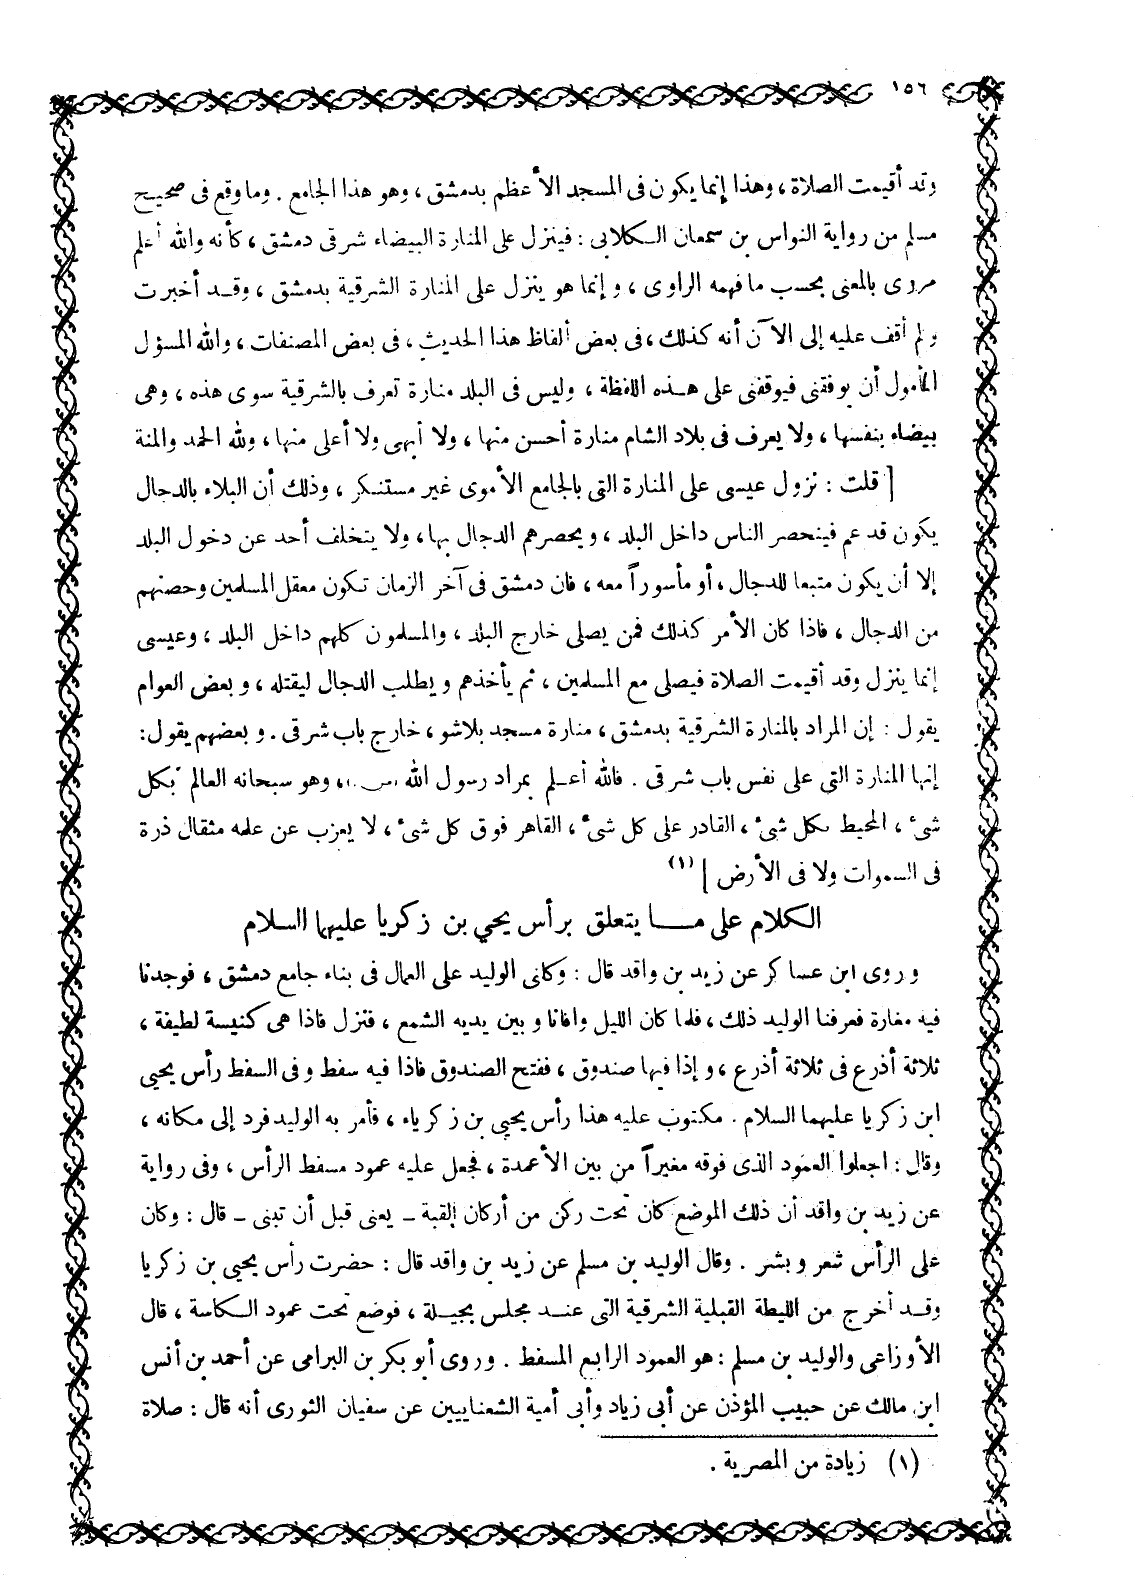 ١٥٦
وقد أقيمت الصلاة ، وهذا إنما يكون فى المسجد الأعظم بدمشق ، وهو هذا الجامع . وما وقع فى صحيح
مسلم من رواية النواس بن سمعان الكلابى : فينزل على المنارة البيضاء شرقى دمشق ، كأنه والله أعلم
مروى بالمعنى بحسب ما فهمه الراوى ، وإنما هو ينزل على المنارة الشرقية بدمشق ، وقد أخبرت
ولم أقف عليه إلى الآن أنه كذلك ، فى بعض ألفاظ هذا الحديث ، فى بعض المصنفات ، والله المسؤل
المأمول أن يوفقنى فيوقفنى على هذه اللفظة ، وليس فى البلد منارة تعرف بالشرقية سوى هذه ، وهى
بيضاء بنفسها ، ولا يعرف فى بلاد الشام منارة أحسن منها ، ولا أبهى ولا أعلى منها ، ولله الحمد والمنة
[ قلت : نزول عيسى على المنارة التى بالجامع الأموى غير مستنكر ، وذلك أن البلاء بالدجال
يكون قد عم فينحصر الناس داخل البلد ، ويحصرهم الدجال بها ، ولا يتخلف أحد عن دخول البلد
إلا أن يكون متبعا للدجال ، أو مأسوراً معه ، فان دمشق فى آخر الزمان تكون معقل المسلمين وحصنهم
من الدجال ، فاذا كان الأمر كذلك فمن يصلى خارج البلد ، والمسلمون كلهم داخل البلد ، وعيسى
إنما ينزل وقد أقيمت الصلاة فيصلى مع المسلمين ، ثم يأخذهم ويطلب الدجال ليقتله ، وبعض العوام
يقول : إن المراد بالمنارة الشرقية بدمشق ، منارة مسجد بلاشو ، خارج باب شرقى . وبعضهم يقول :
إنها المنارة التى على نفس باب شرقى . فالله أعلم بمراد رسول الله ، وهو سبحانه العالم بكل
شىء ، المحيط بكل شىء ، القادر على كل شىء ، القاهر فوق كل شىء ، لا يعزب عن علمه مثقال ذرة
فى السموات ولا فى الأرض ] (١)
الكلام على ما يتعلق برأس يحيي بن زكريا عليهما السلام
وروى ابن عساكر عن زيد بن واقد قال : وكلنى الوليد على العمال فى بناء جامع دمشق ، فوجدنا
فيه مغارة فعرفنا الوليد ذلك ، فلما كان الليل وافانا وبين يديه الشمع ، فنزل فاذا هى كنيسة لطيفة ،
ثلاثة أذرع فى ثلاثة أذرع ، وإذا فيها صندوق ، ففتح الصندوق فاذا فيه سفط وفى السفط رأس يحيى
ابن زكريا عليهما السلام . مكتوب عليه هذا رأس يحيى بن زكرياء ، فأمر به الوليد فرد إلى مكانه ،
وقال : اجعلوا العمود الذى فوقه مغيراً من بين الأعمدة ، فجعل عليه عمود مسفط الرأس ، وفى رواية
عن زيد بن واقد أن ذلك الموضع كان تحت ركن من أركان القبة ــ يعنى قبل أن تبنى ــ قال : وكان
على الرأس شعر وبشر . وقال الوليد بن مسلم عن زيد بن واقد قال : حضرت رأس يحيى بن زكريا
وقد أخرج من الليطة القبلية الشرقية التى عند مجلس بجيلة ، فوضع تحت عمود الكاسة ، قال
الأوزاعى والوليد بن مسلم : هو العمود الرابع المسفط . وروى أبو بكر بن البرامى عن أحمد بن أنس
ابن مالك عن حبيب المؤذن عن أبى زياد وأبى أمية الشعنابيين عن سفيان الثورى أنه قال : صلاة
(١) زيادة من المصرية .